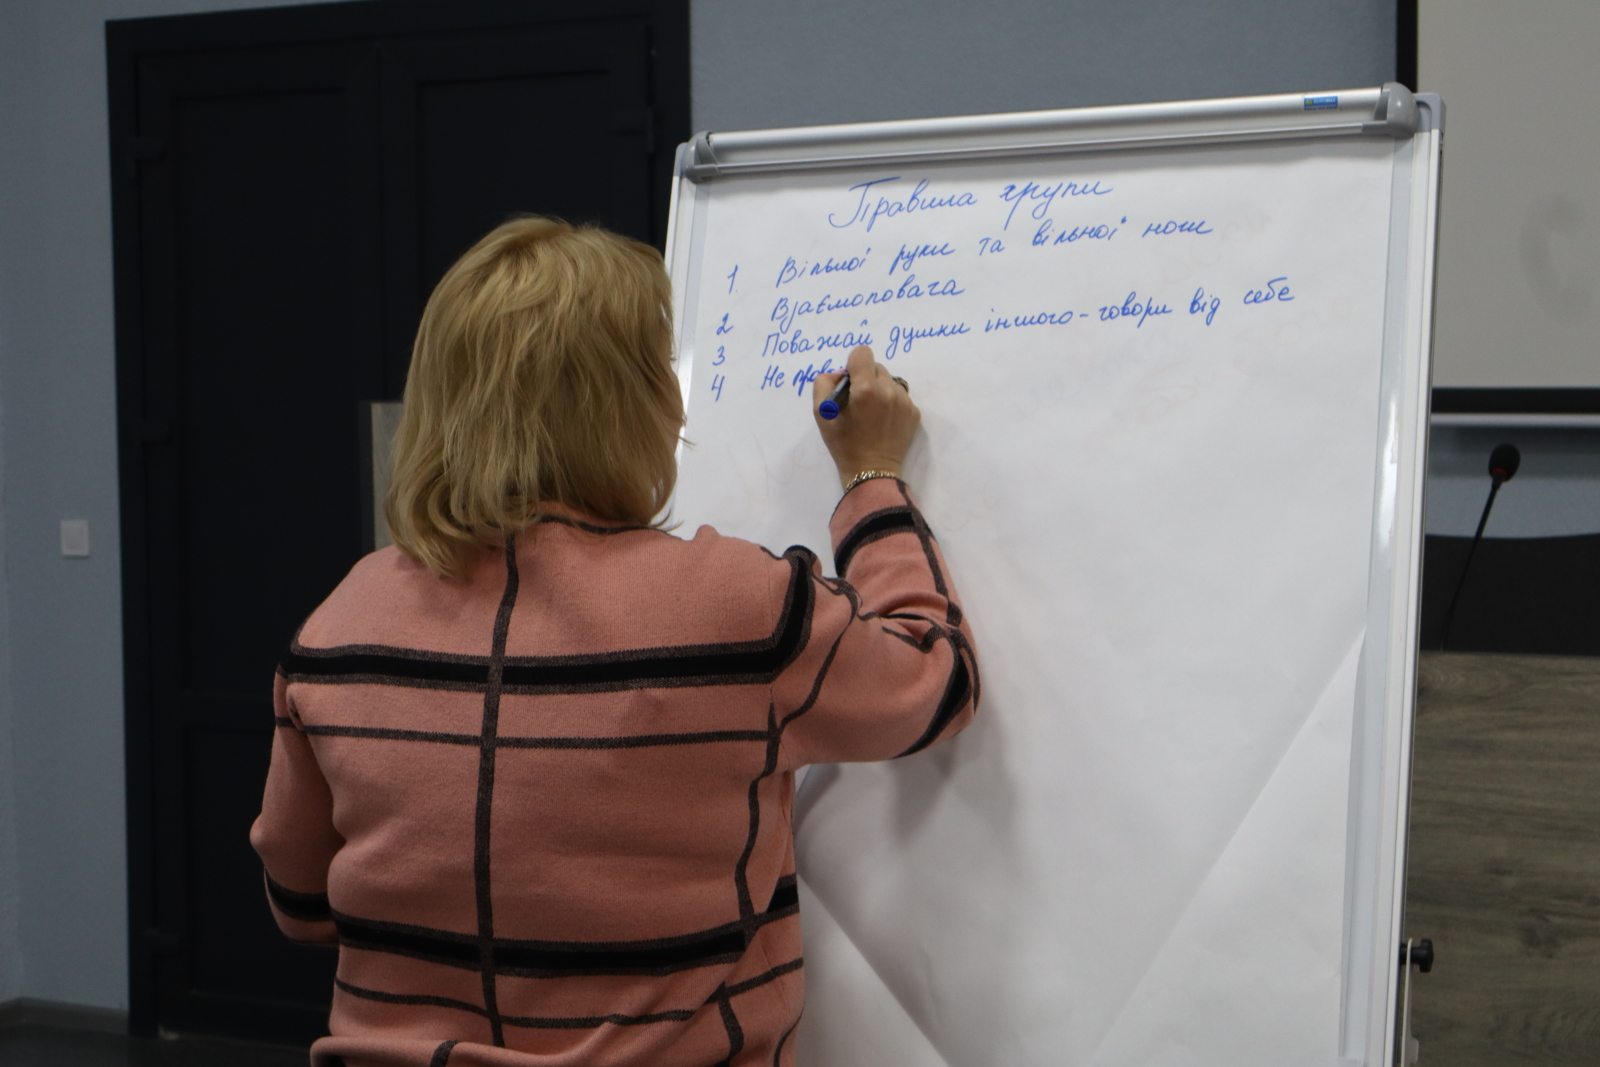 Правила групи
1. Вільної руки та вільної ноги
2 Взаємоповага
3 Поважай думки іншого - говори від себе
4 Не